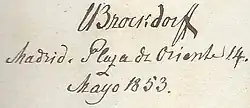 UBrockdorff
Madrid. Plaza de Oriente 14.
Mayo 1853.